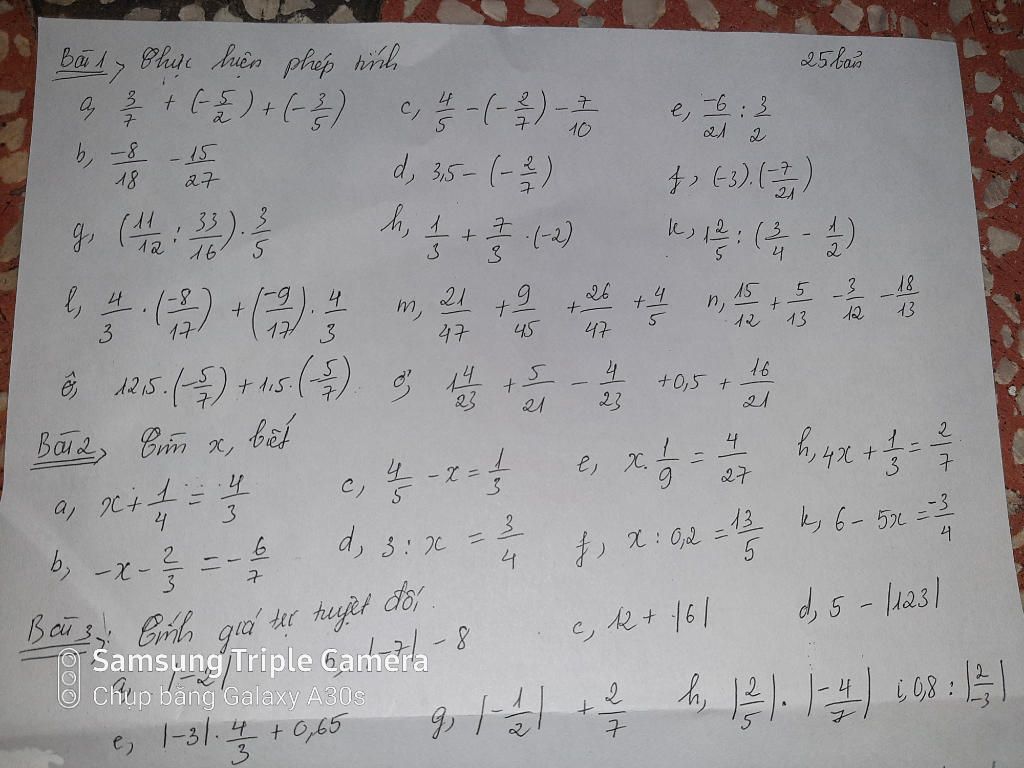 Bài 1, Thực hiện phép tính 25 bản
a, 3/7 + (-5/2) + (-3/5) c, 4/5 - (-2/7) - 7/10 e, -6/21 : 3/2
b, -8/18 - 15/27 d, 3,5 - (-2/7) f, (-3).(-7/21)
g, (11/12 : 33/16) . 3/5 h, 1/3 + 7/3 . (-2) k, 1 2/5 : (3/4 - 1/2)
l, 4/3 . (-8/17) + (-9/17) . 4/3 m, 21/47 + 9/45 + 26/47 + 4/5 n, 15/12 + 5/13 - 3/12 - 18/13
ô, 12,5.(-5/7) + 1,5.(-5/7) ơ, 1 4/23 + 5/21 - 4/23 + 0,5 + 16/21
Bài 2, Tìm x, biết
a, x + 1/4 = 4/3 c, 4/5 - x = 1/3 e, x. 1/9 = 4/27 h, 4x + 1/3 = 2/7
b, -x - 2/3 = -6/7 d, 3 : x = 3/4 f, x : 0,2 = 13/5 k, 6 - 5x = -3/4
Bài 3: Tính giá trị tuyệt đối,
a, |-2| b, |-7| - 8 c, 12 + |6| d, 5 - |123|
e, |-3|. 4/3 + 0,65 g, |-1/2| + 2/7 h, |2/5| . |-4/7| i, 0,8 : |2/-3|
Samsung Triple Camera
Chụp bằng Galaxy A30s